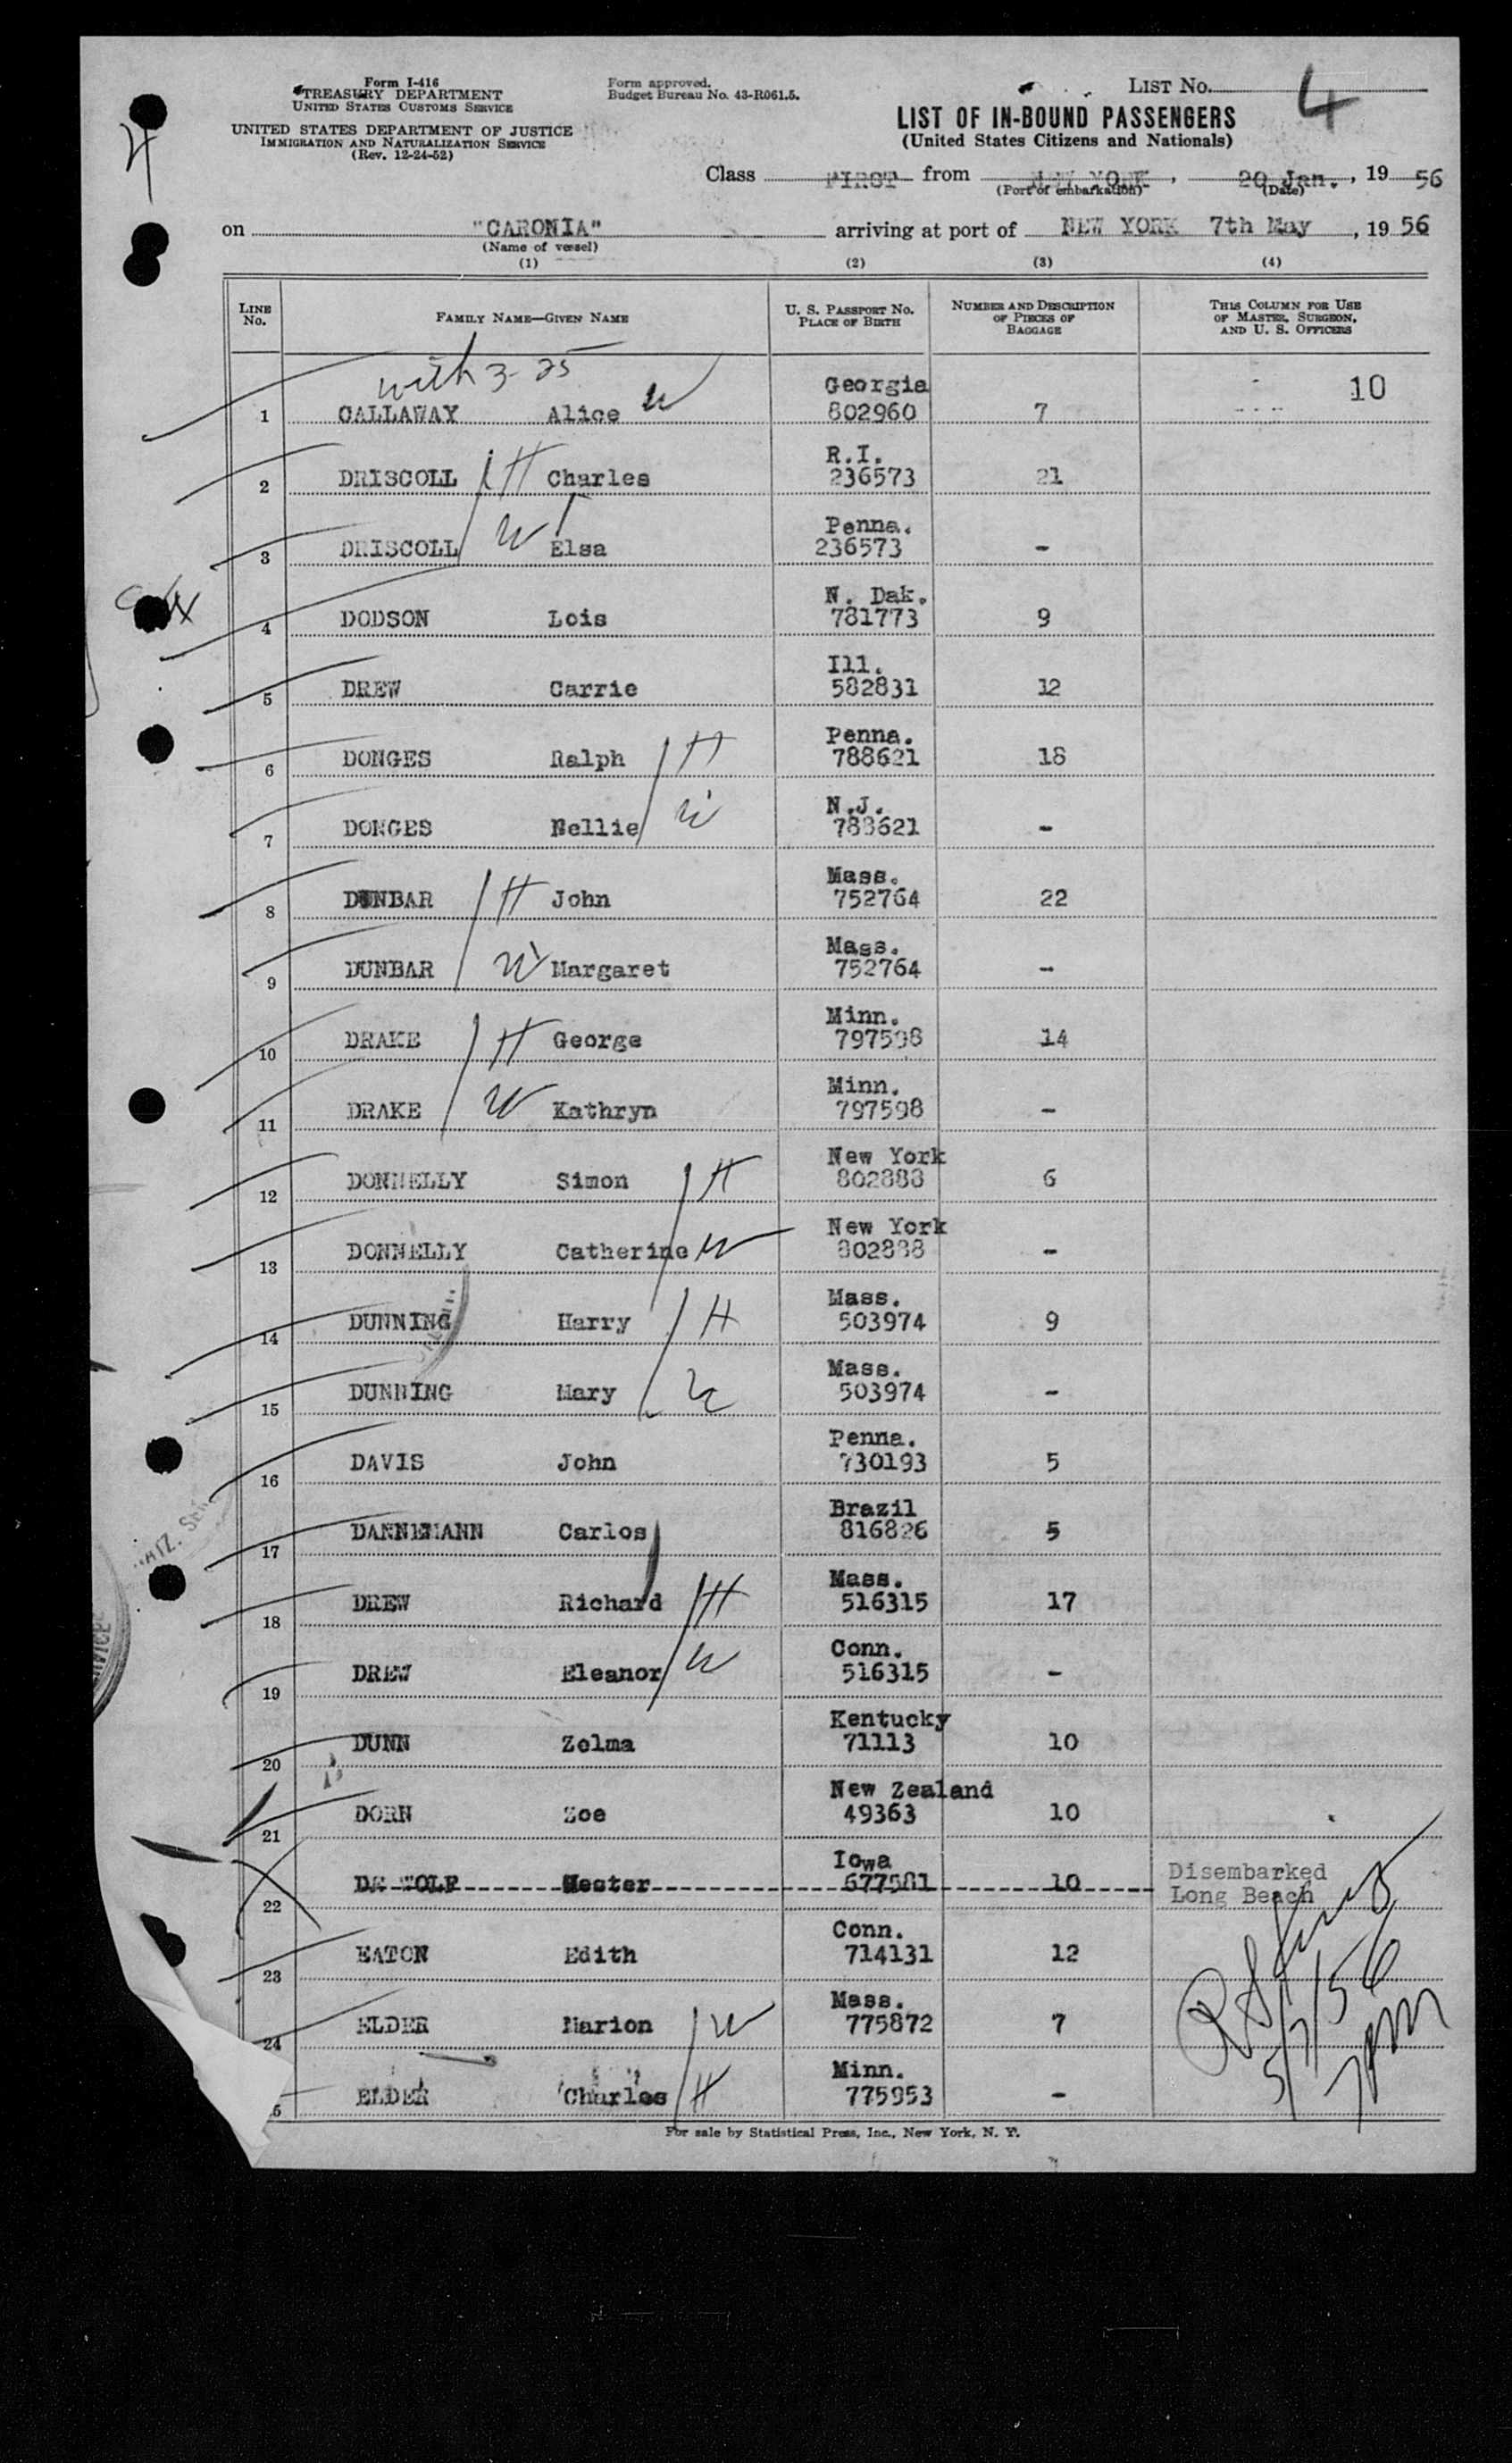 Form I-416
TREASURY DEPARTMENT
UNITED STATES CUSTOMS SERVICE
UNITED STATES DEPARTMENT OF JUSTICE
IMMIGRATION AND NATURALIZATION SERVICE
(Rev. 12-24-52)
Form approved.
Budget Bureau No. 43-R061.5.
LIST No. 4
4
LIST OF IN-BOUND PASSENGERS
(United States Citizens and Nationals)
Class FIRST from NEW YORK, 20 Jan., 1956
(Port of embarkation) (Date)
on "CARONIA" arriving at port of NEW YORK 7th May, 1956
(Name of vessel)
(1) (2) (3) (4)
LINE No. FAMILY NAME—GIVEN NAME U. S. PASSPORT NO. PLACE OF BIRTH NUMBER AND DESCRIPTION OF PIECES OF BAGGAGE THIS COLUMN FOR USE OF MASTER, SURGEON, AND U. S. OFFICERS
with 3-25
Georgia 10
1 CALLAWAY Alice W 802960 7
R.I.
2 DRISCOLL H Charles 236573 21
Penna.
3 DRISCOLL W Elsa 236573 -
N. Dak.
4 DODSON Lois 781773 9
Ill.
5 DREW Carrie 582831 12
Penna.
6 DONGES Ralph H 788621 18
N.J.
7 DONGES Nellie W 788621 -
Mass.
8 DUNBAR H John 752764 22
Mass.
9 DUNBAR W Margaret 752764 -
Minn.
10 DRAKE H George 797598 14
Minn.
11 DRAKE W Kathryn 797598 -
New York
12 DONNELLY Simon H 802888 6
New York
13 DONNELLY Catherine W 802888 -
Mass.
14 DUNNING Harry H 503974 9
Mass.
15 DUNNING Mary W 503974 -
Penna.
16 DAVIS John 730193 5
Brazil
17 DANNEMANN Carlos 816826 5
Mass.
18 DREW Richard H 516315 17
Conn.
19 DREW Eleanor W 516315 -
Kentucky
20 DUNN Zelma 71113 10
New Zealand
21 DORN Zoe 49363 10
Iowa Disembarked
22 DE WOLF Hester 677581 10 Long Beach
Conn.
23 EATON Edith 714131 12
Mass.
24 ELDER Marion W 775872 7
5/7/56
7PM
Minn.
5 ELDER Charles H 775953 -
For sale by Statistical Press, Inc., New York, N. Y.